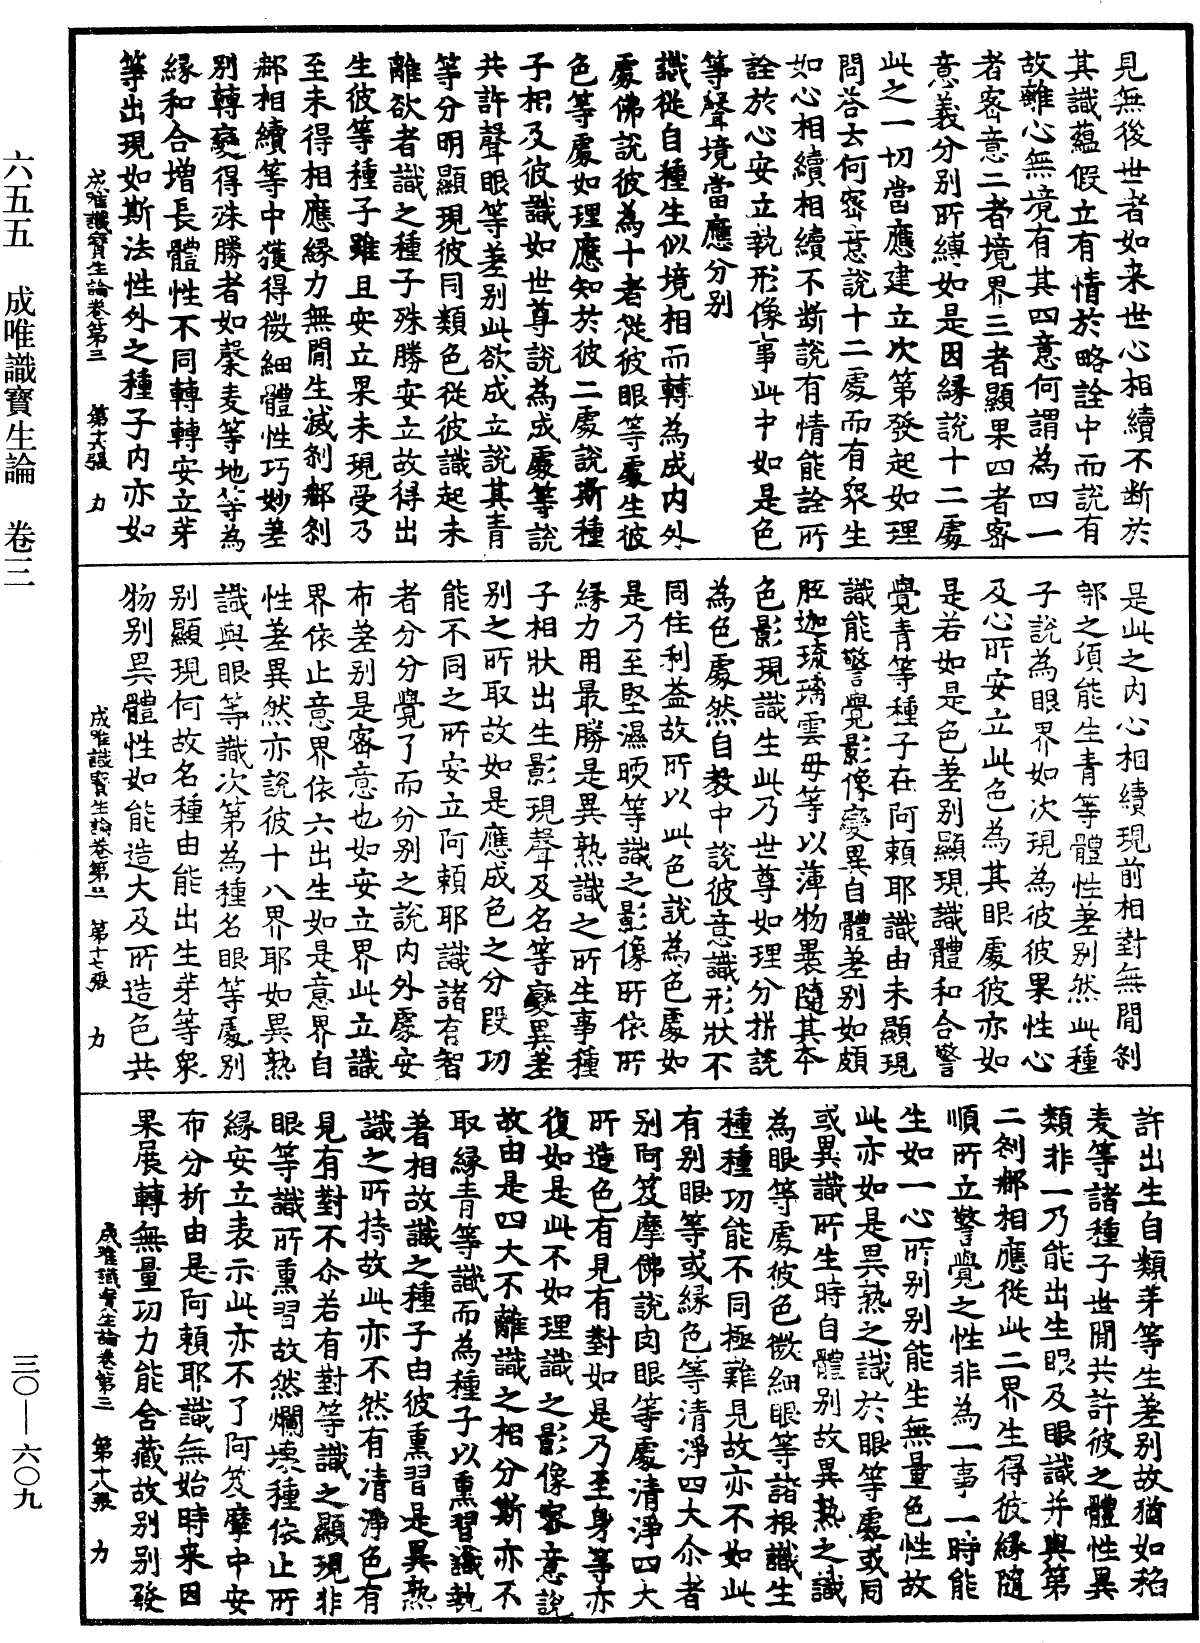 見無後世者如来世心相續不断於
其識蘊假立有情於略詮中而說有
故離心無境有其四意何謂為四一
者密意二者境界三者顯果四者密
意義分別所縛如是因緣說十二處
此之一切當應建立次第發起如理
問荅云何密意說十二處而有衆生
如心相續相續不断說有情能詮所
詮於心安立執形像事此中如是色
等聲境當應分別
識從自種生似境相而轉為成内外
處佛說彼為十者從彼眼等處生彼
色等處如理應知於彼二處說斯種
子相及彼識如世尊說為成處等說
共許聲眼等差別此欲成立說其青
等分明顯現彼同類色從彼識起未
離欲者識之種子殊勝安立故得出
生彼等種子雖且安立果未現受乃
至未得相應緣力無閒生滅刹那刹
那相續等中獲得微細體性巧妙差
別轉變得殊勝者如𪍿麦等地等為
緣和合增長體性不同轉轉安立芽
等出現如斯法性外之種子内亦如
成唯識寶生論卷第三　第十六張　力
是此之内心相續現前相對無閒刹
那之項能生青等體性差別然此種
子說為眼界如次現為彼彼果性心
及心所安立此色為其眼處彼亦如
是若如是色差別顯現識體和合警
覺青等種子在阿賴耶識由未顯現
識能警覺影像變異自體差別如頗
胝迦琉璃雲母等以薄物褁隨其本
色影現識生此乃世尊如理分㭊說
為色處然自教中說彼意識形狀不
同住利益故所以此色說為色處如
是乃至堅濕煗等識之影像所依所
緣力用最勝是異熟識之所生事種
子相狀出生影現聲及名等變異差
別之所取故如是應成色之分段功
能不同之所安立阿賴耶識諸有智
者分分覺了而分別之說内外處安
布差別是密意也如安立界此立識
界依止意界依六出生如是意界自
性差異然亦說彼十八界耶如異熟
識與眼等識次第為種名眼等處別
別顯現何故名種由能出生芽等衆
物別異體性如能造大及所造色共
成唯識寶生論卷第三　第十七張　力
許出生自類芽等生差別故猶如稻
麦等諸種子世閒共許彼之體性異
類非一乃能出生眼及眼識并與第
二刹那相應從此二界生得彼緣隨
順所立警覺之性非為一事一時能
生如一心所別別能生無量色性故
此亦如是異熟之識於眼等處或同
或異識所生時自體別故異熟之識
為眼等處彼色微細眼等諸根識生
種種功能不同極難見故亦不如此
有別眼等或緣色等清淨四大尒者
別阿笈摩佛說肉眼等處清淨四大
所造色有見有對如是乃至身等亦
復如是此不如理識之影像容意說
故由是四大不離識之相分斯亦不
取緣青等識而為種子以熏習識執
著相故識之種子由彼熏習是異熟
識之所持故此亦不然有清淨色有
見有對不尒若有對等識之顯現非
眼等識所熏習故然爛壞種依止所
緣安立表示此亦不了阿笈摩中安
布分析由是阿賴耶識無始時来因
果展轉無量功力能含藏故別別發
成唯識寶生論卷第三　第十八張　力
六五五　成唯識寶生論　卷三
三〇—六〇九